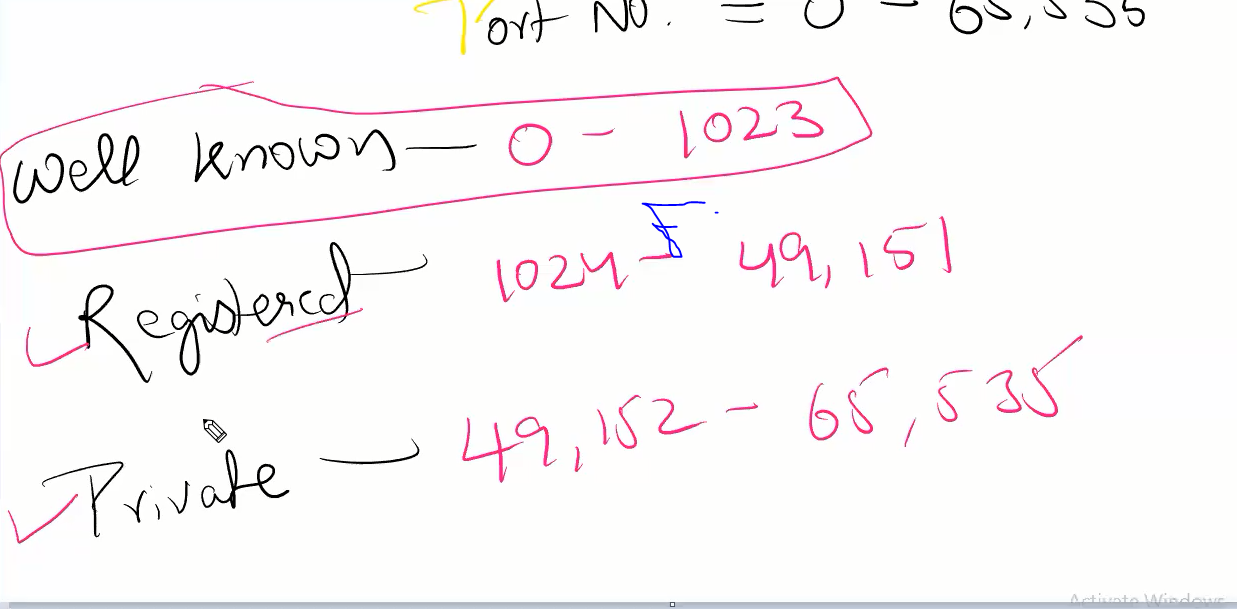 Port No. = 0 - 65,535
Well known — 0 - 1023
Registered — 1024 - 49,151
Private — 49,152 - 65,535
Activate Windows